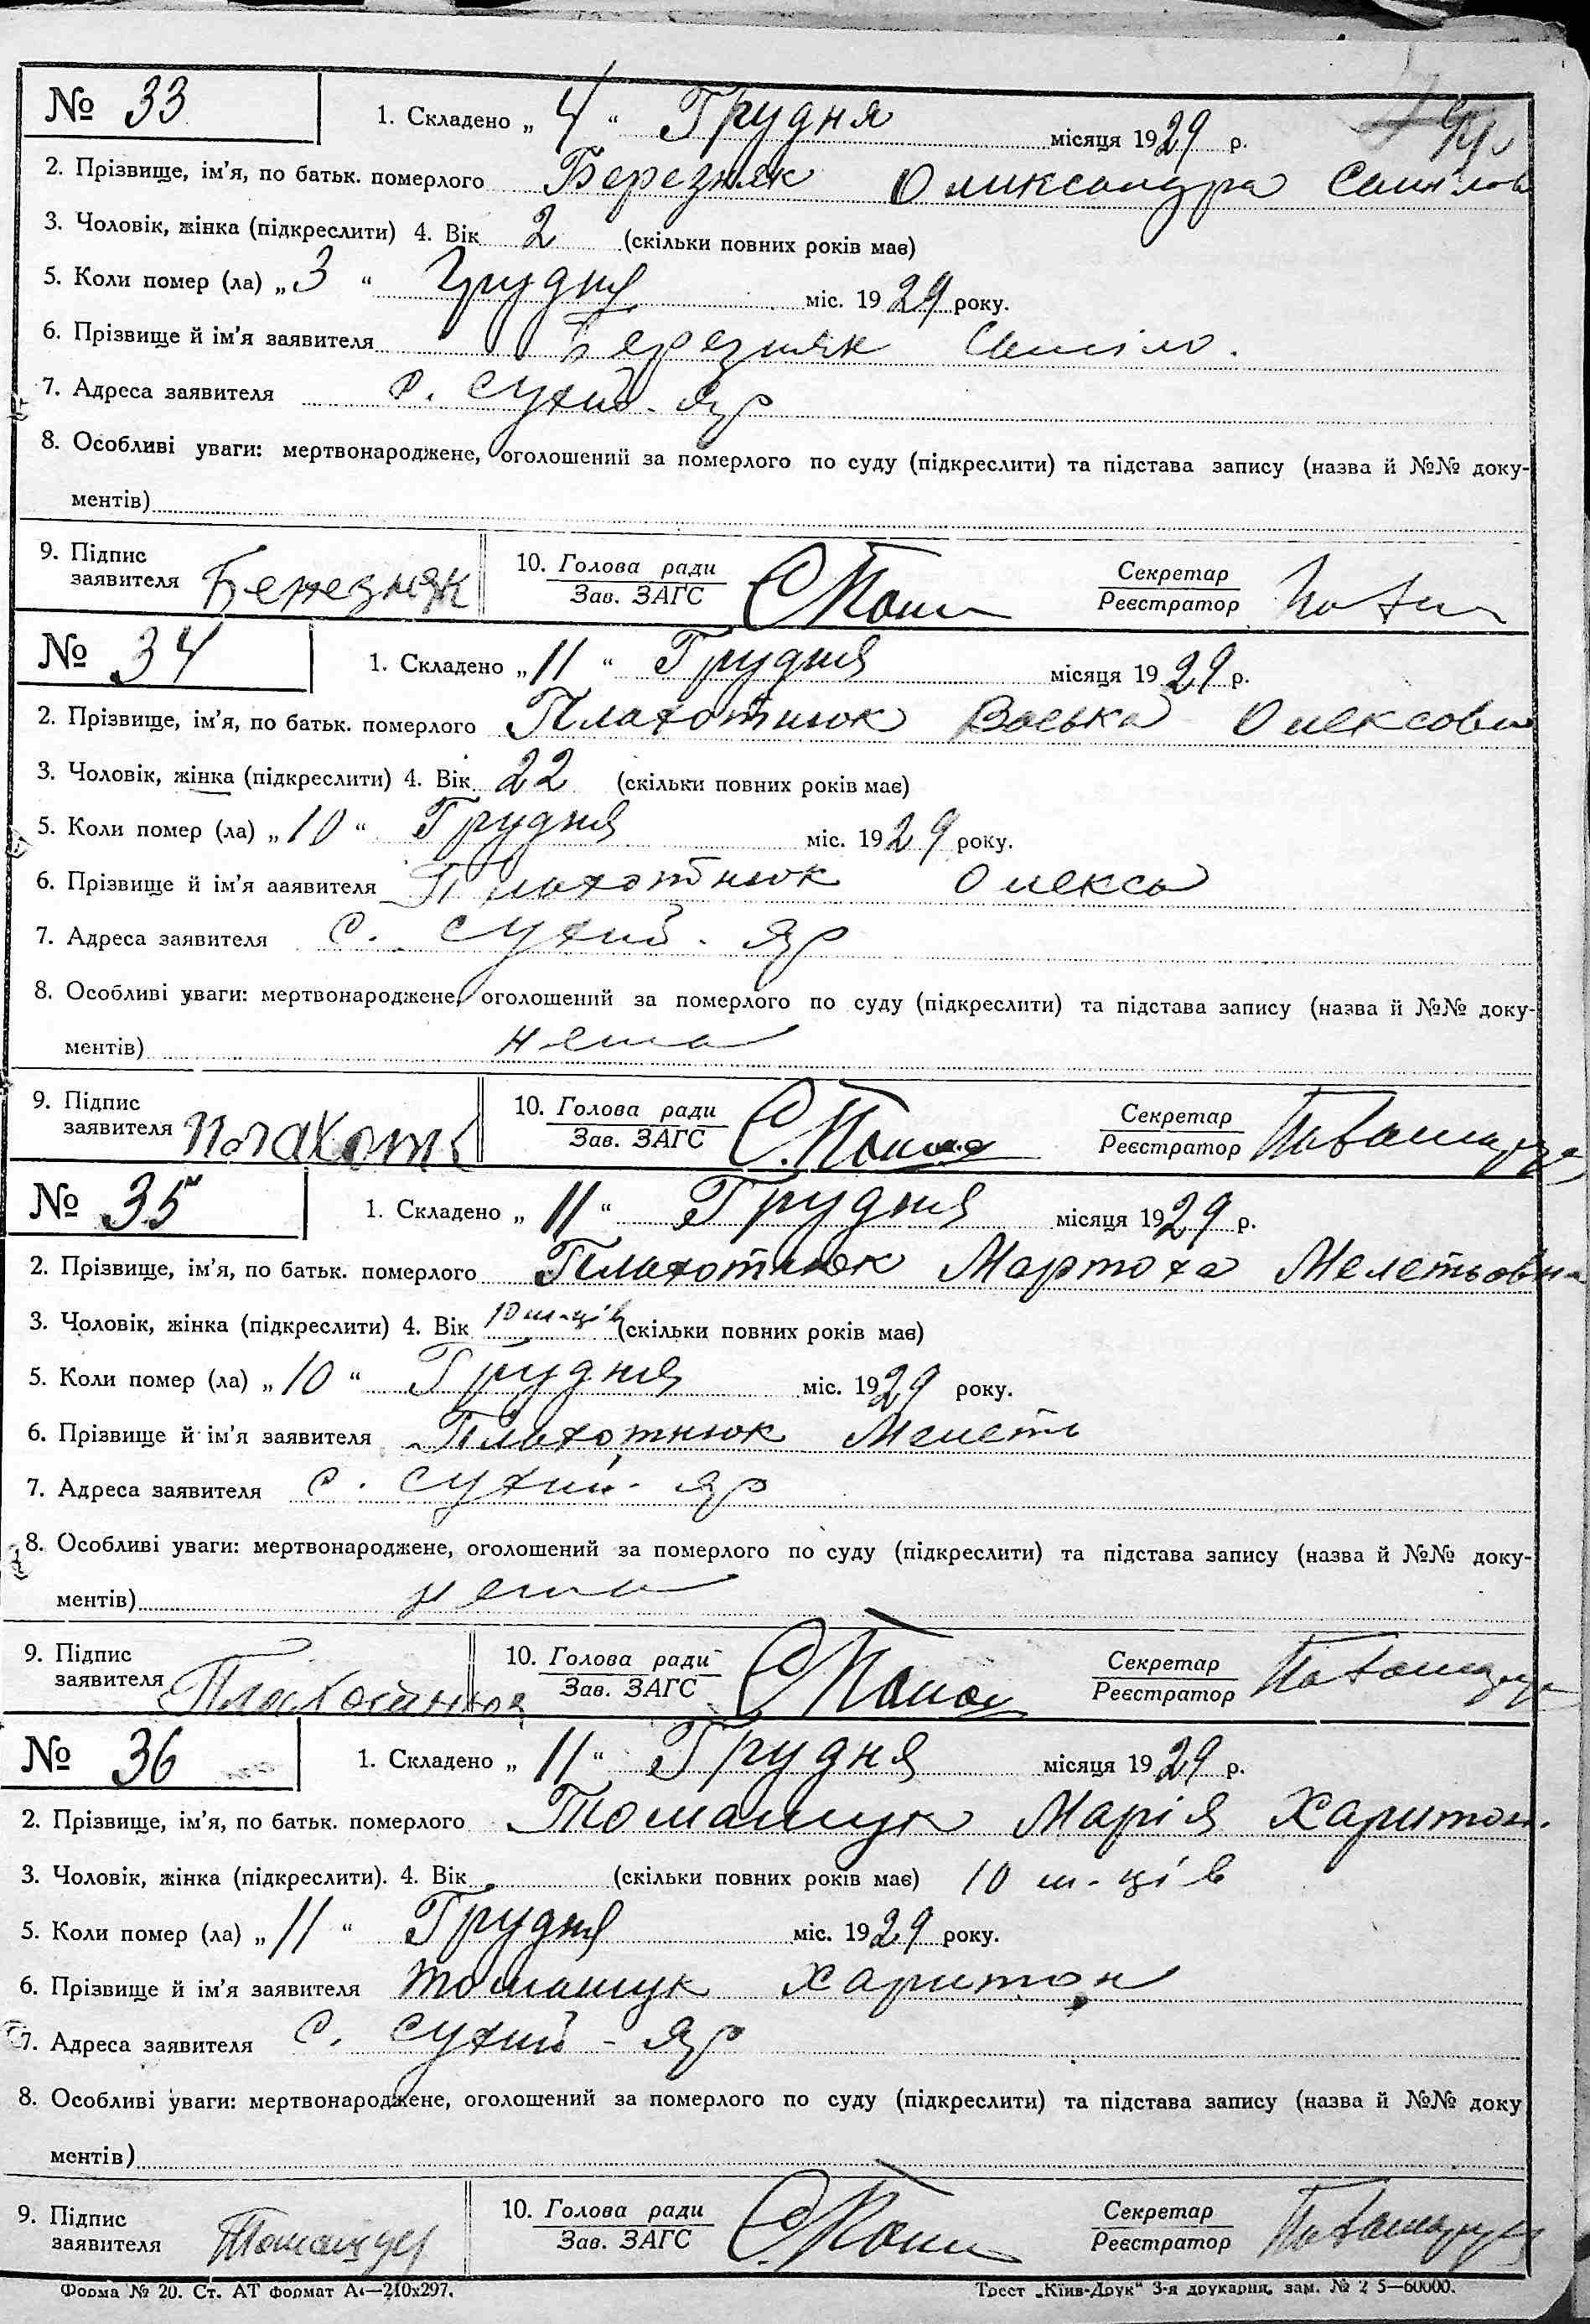 № 33 1. Складено „ 4 “ Грудня місяця 1929 р.
2. Прізвище, ім'я, по батьк. померлого Березняк Оликсандра
3. Чоловік, жінка (підкреслити) 4. Вік 2 (скільки повних років має)
5. Коли помер (ла) „ 3 “ Грудня міс. 1929 року.
6. Прізвище й ім'я заявителя Березняк
7. Адреса заявителя с. Сухий-Яр
8. Особливі уваги: мертвонароджене, оголошений за померлого по суду (підкреслити) та підстава запису (назва й №№ доку-
ментів)
9. Підпис заявителя Березняк 10. Голова ради Зав. ЗАГС Секретар Реєстратор
№ 34 1. Складено „ 11 “ Грудня місяця 1929 р.
2. Прізвище, ім'я, по батьк. померлого Плахотнюк Васька Олексовн
3. Чоловік, жінка (підкреслити) 4. Вік 22 (скільки повних років має)
5. Коли помер (ла) „ 10 “ Грудня міс. 1929 року.
6. Прізвище й ім'я ааявителя Плахотнюк Олекса
7. Адреса заявителя с. Сухий-Яр
8. Особливі уваги: мертвонароджене, оголошений за померлого по суду (підкреслити) та підстава запису (назва й №№ доку-
ментів) нема
9. Підпис заявителя 10. Голова ради Зав. ЗАГС Секретар Реєстратор
№ 35 1. Складено „ 11 “ Грудня місяця 1929 р.
2. Прізвище, ім'я, по батьк. померлого Плахотнюк Мартоха Мелетьовна
3. Чоловік, жінка (підкреслити) 4. Вік 10 м-ців (скільки повних років має)
5. Коли помер (ла) „ 10 “ Грудня міс. 1929 року.
6. Прізвище й ім'я заявителя Плахотнюк Мелеть
7. Адреса заявителя с. Сухий-Яр
8. Особливі уваги: мертвонароджене, оголошений за померлого по суду (підкреслити) та підстава запису (назва й №№ доку-
ментів) нема
9. Підпис заявителя Плахотнюк 10. Голова ради Зав. ЗАГС Секретар Реєстратор
№ 36 1. Складено „ 11 “ Грудня місяця 1929 р.
2. Прізвище, ім'я, по батьк. померлого Томашук Марія Харитон.
3. Чоловік, жінка (підкреслити). 4. Вік (скільки повних років має) 10 м-ців
5. Коли помер (ла) „ 11 “ Грудня міс. 1929 року.
6. Прізвище й ім'я заявителя Томашук Харитон
7. Адреса заявителя с. Сухий-Яр
8. Особливі уваги: мертвонароджене, оголошений за померлого по суду (підкреслити) та підстава запису (назва й №№ доку
ментів)
9. Підпис заявителя 10. Голова ради Зав. ЗАГС Секретар Реєстратор
Форма № 20. Ст. АТ формат А4—210х297. Трест „Київ-Друк“ 3-я друкарня, зам. № 2 5—60000.